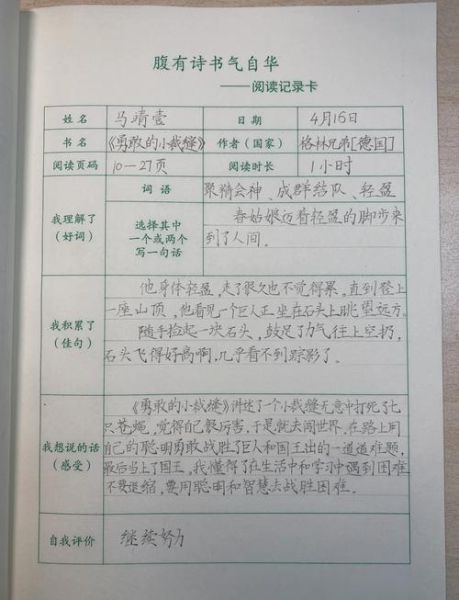 腹有诗书气自华
——阅读记录卡
姓名 马靖壹 日期 4月16日
书名 《勇敢的小裁缝》 作者(国家) 格林兄弟[德国]
阅读页码 10—27页 阅读时长 1小时
我理解了
(好词)
词语 聚精会神、成群结队、轻盈
选择其中
一个或两个
写一句话
春姑娘迈着轻盈的脚步来
到了人间。
我积累了
(佳句)
他身体轻盈,走了很久也不觉得累,直到登上
一座山顶,他看见一个巨人正坐在石头上眺望远方。
随手捡起一块石头,鼓足了力气往上空扔,
石头飞得好高啊,几乎看不到踪影了。
我想说的话
(感受)
《勇敢的小裁缝》讲述了个小裁缝无意中打死了七
只苍蝇,觉得自己很厉害,于是就去闯世界,在路上用
自己的聪明勇敢战胜了巨人和国王出的一道道难题,
最后当上了国王。我懂得了在生活中和学习中遇到困难
不要退缩,要用聪明和智慧去战胜困难。
自我评价 继续努力